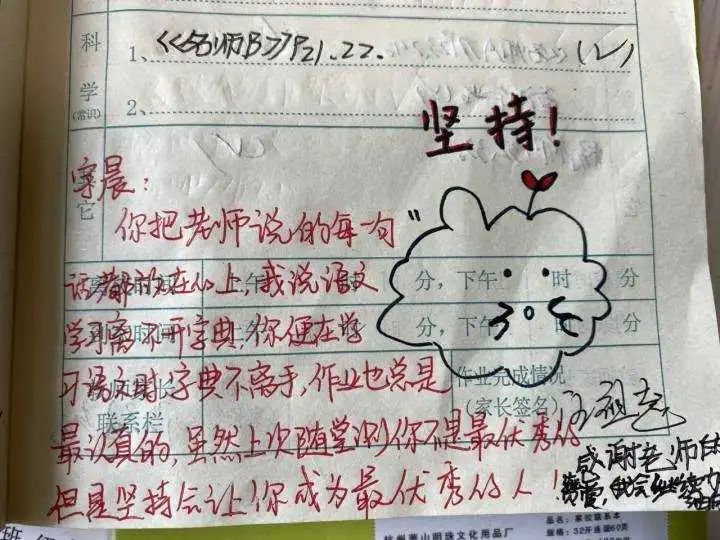 科
学
(常识)
1、《名师B》P21.22. (✓)
2、
坚持！
它
宇晨：
你把老师说的每一句
话都放在心上，我说语文
分，下午 时 分
学习离不开字典，你便在学
分，下午 时 分
习语文时字典不离手，作业也总是
作业完成情况
联系栏
（家长签名）
最认真的，虽然上次随堂测你不是最优秀的
感谢老师的
但是坚持会让你成为最优秀的人！
杭州萧山明珠文化用品厂
品名：家校联系本
规格：32开连面60页